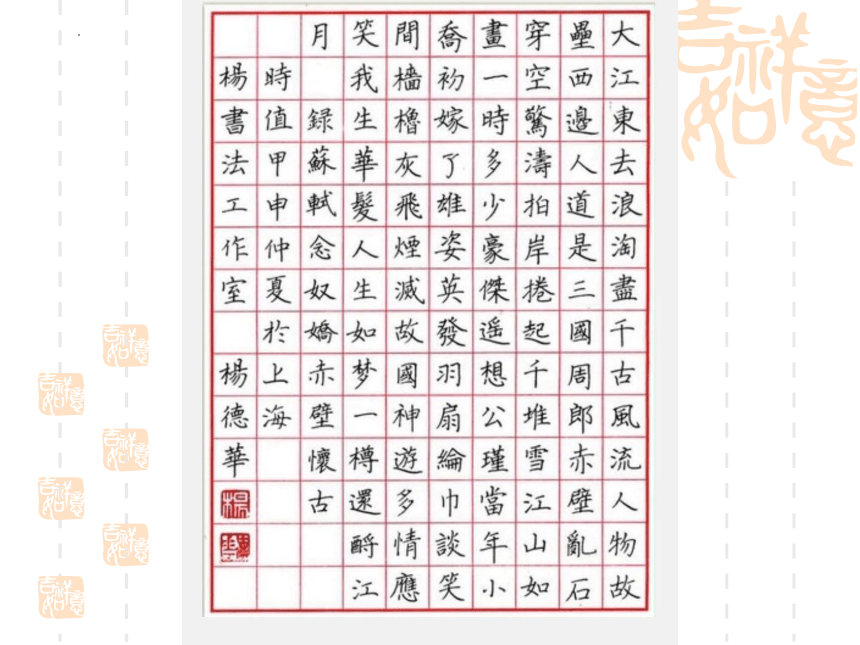 大江東去浪淘盡千古風流人物故
壘西邊人道是三國周郎赤壁亂石
穿空驚濤拍岸捲起千堆雪江山如
畫一時多少豪傑遥想公瑾當年小
喬初嫁了雄姿英發羽扇綸巾談笑
間檣櫓灰飛煙滅故國神遊多情應
笑我生華髮人生如梦一樽還酹江
月 録蘇軾念奴嬌赤壁懷古
時值甲申仲夏於上海
楊書法工作室 楊德華
楊
吉祥如意
吉祥如意
吉祥如意
吉祥如意
吉祥如意
吉祥如意
吉祥如意